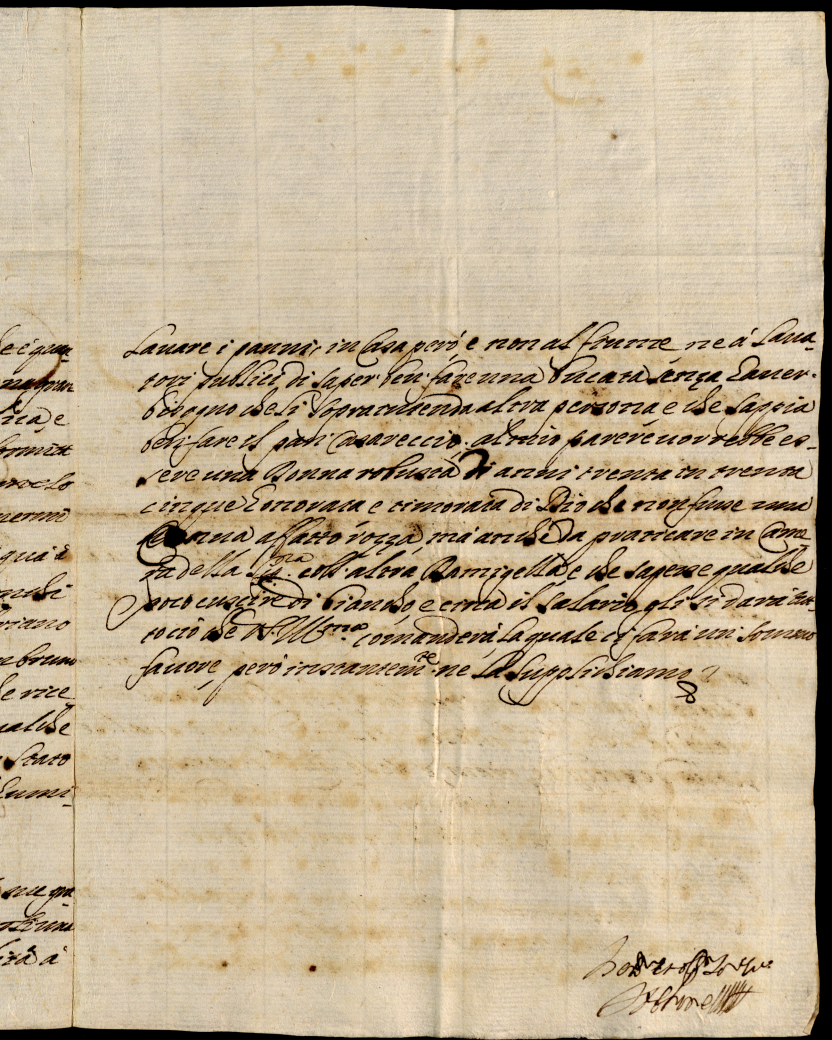 e è quan
na gran
lica, e
formitt
quà è
riano
e rice
ualche
Stato
Lumi
sue gra
lità à
Lavare i panni, in Casa però e non al fiume, ne à Lava=
tori publici, di saper ben fare una bucata senza haver
bisogno che li sopraintenda altra persona, e che sappia
ben fare il pan Casareccio; al mio parere vorrebbe es=
sere una Donna robusta di anni trenta in trenta
cinque honorata e timorata di Dio che non fusse una
Donna affatto rozza, mà anche da praticare in Came
ra della Sig.ra coll'altra Damigella e che sapesse qualche
poco cuscire di bianco e circa il salario gli si darà tut
to ciò che V.S. Ill.ma comanderà la quale ci farà un sommo
favore, però instantem.te ne La supplichiamo